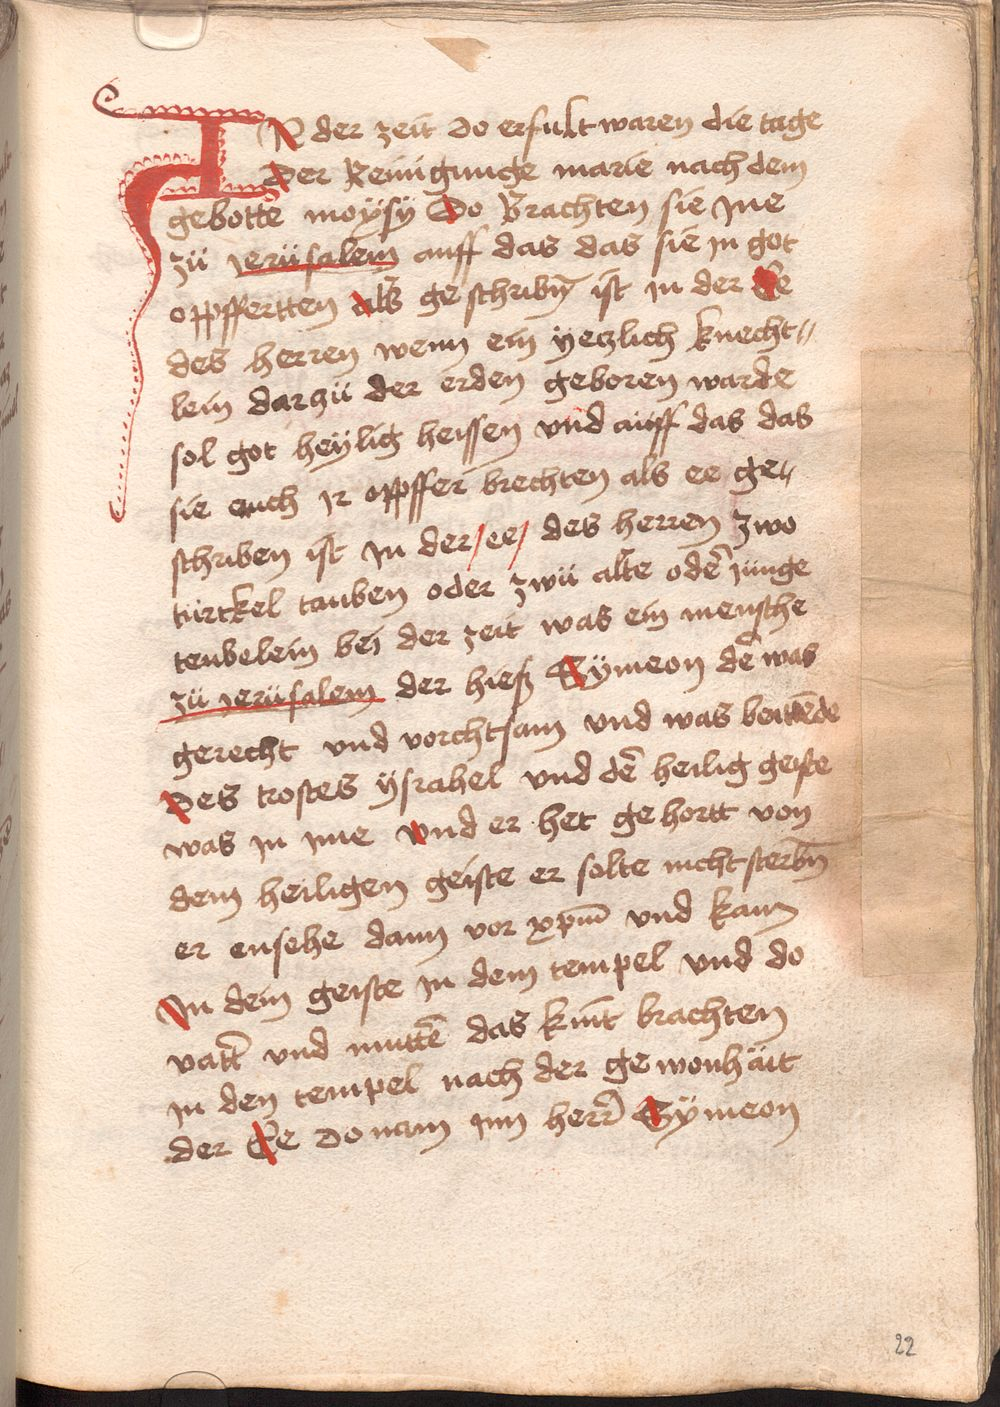 IN der zeit do erfult waren die tage
Der Reinigunge marie nach dem
gebotte moÿsÿ Do Brachten sie jne
zü jerüsalem auff das das sie jn got
oppffertten als geschribn̄ ist in der Ee
des herren wenn ein ÿeczlich knecht〃
lein darzü der erden geboren warde
sol got heÿlig heissen vnd auff das das
sie auch jr oppffer brechten als ee ge〃
schriben ist jn der / ee / des herren zwo
türckel tauben oder zwü alte odē junge
teubelein bei der zeit was ein mensche
zü jerüsalem der hieß Sÿmeon dē was
gerecht vnd vorchtsam vnd was beittēde
Des trostes ÿsrahel vnd dē heilig geiste
was jn jme vnd er het gehortt von
dem heiligen geiste er solte nicht sterbn̄
er ensehe dann vor xpm̄ vnd kam
Jn dem geiste jn dem tempel vnd do
vatt̄ vnd muttē das kint brachten
jn den tempel nach der gewonhäit
der Ee do nam jnn herr̄ Sÿmeon
22